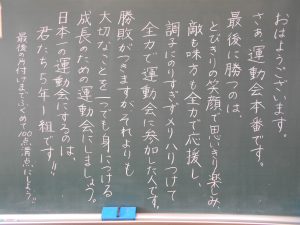 おはようございます。
さあ、運動会本番です。
最後に勝つのは、
とびきりの笑顔で思いきり楽しみ、
敵も味方も全力で応援し、
調子にのりすぎずメリハリつけて
全力で運動会に参加した人です。
勝敗がつきますが、それよりも
大切なことを一つでも身につける
成長のための運動会にしましょう。
日本一の運動会にするのは、
君たち5年1組です!!
最後の片付けまでふくめて100点満点にしよう!!